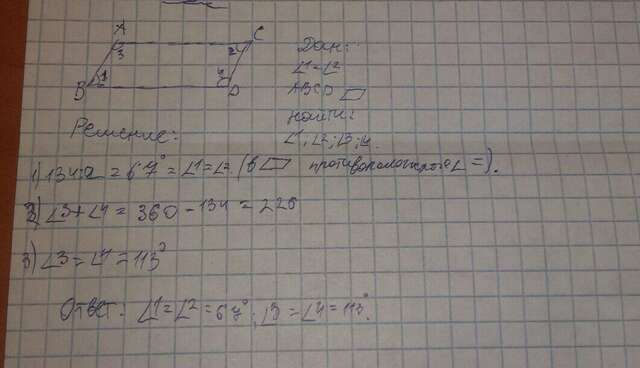 A C
3 24
1 3
B D
Дан:
∠1=∠2
ABCD ▱
найти:
∠1,∠2;∠3;4.
Решение:
1) 134:2 = 67° = ∠1=∠2. (в ▱ противоположного ∠ =).
2) ∠3+∠4 = 360 - 134 = 226
3) ∠3=∠4=113°
Ответ: ∠1=∠2=67°; ∠3=∠4=113°.